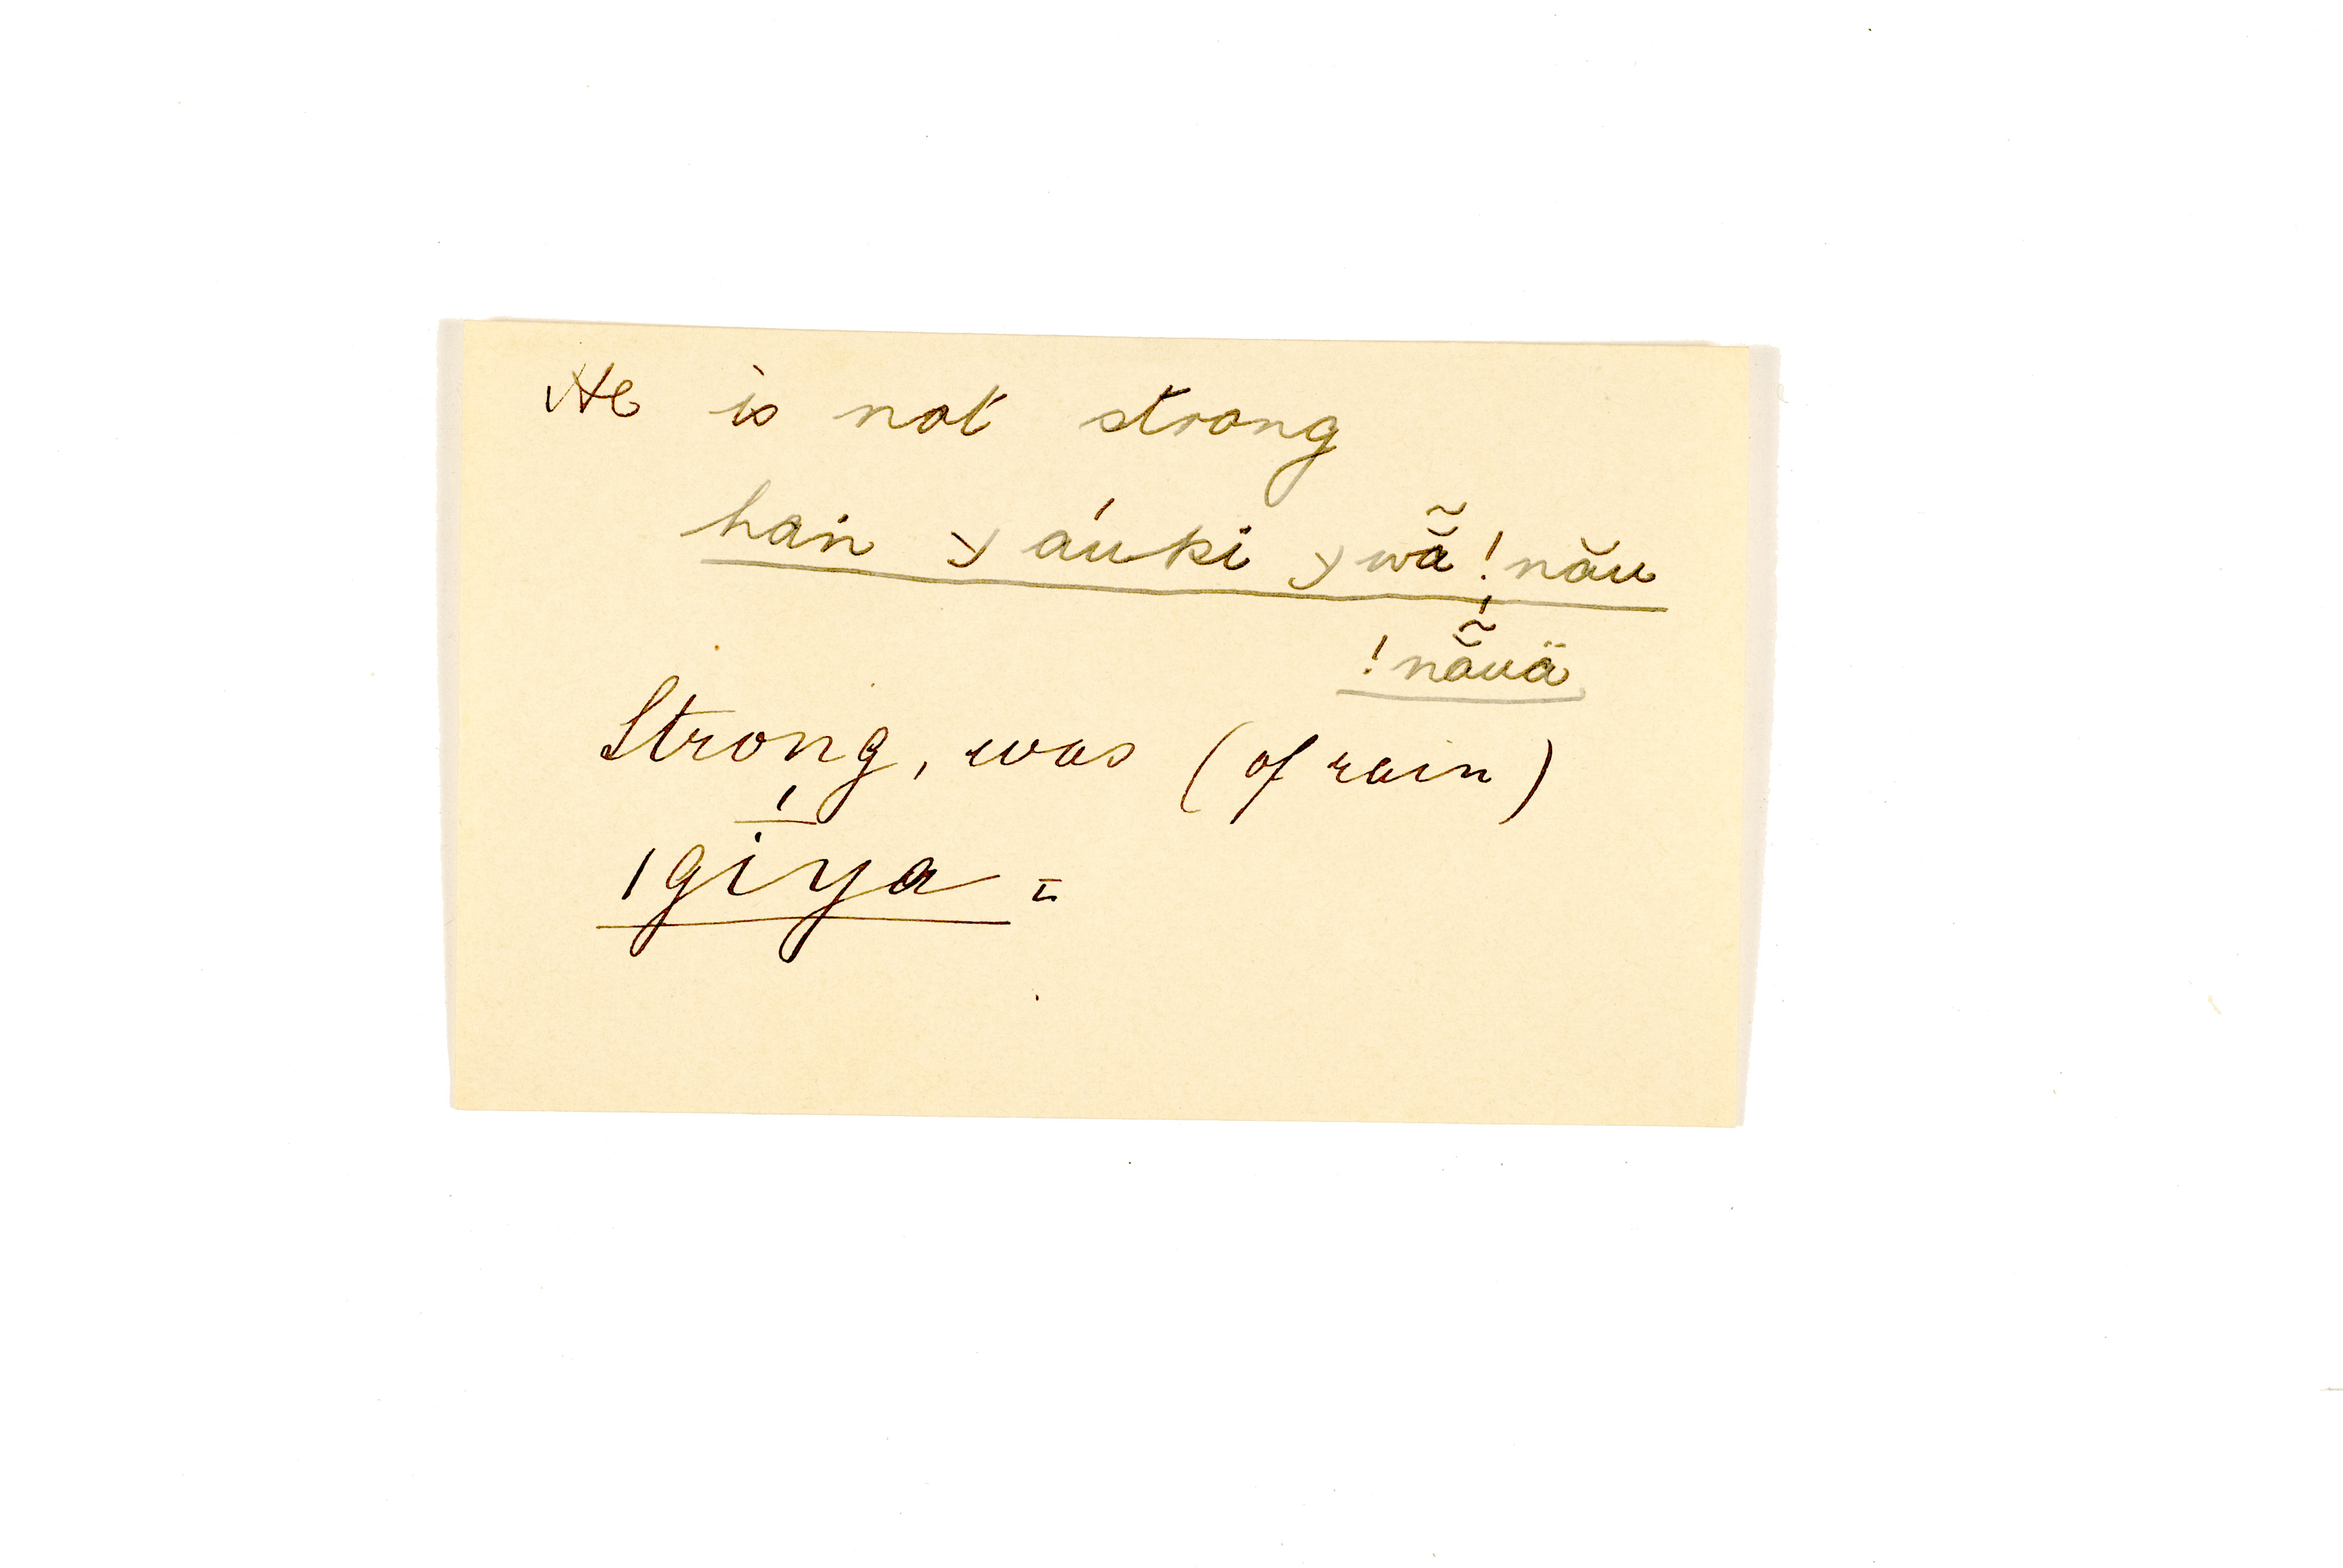 He is not strong
han ɣ áuki ɣ wã̆ ! nău
! nã̆́uä
Strong, was (of rain)
ǀgī́ya =